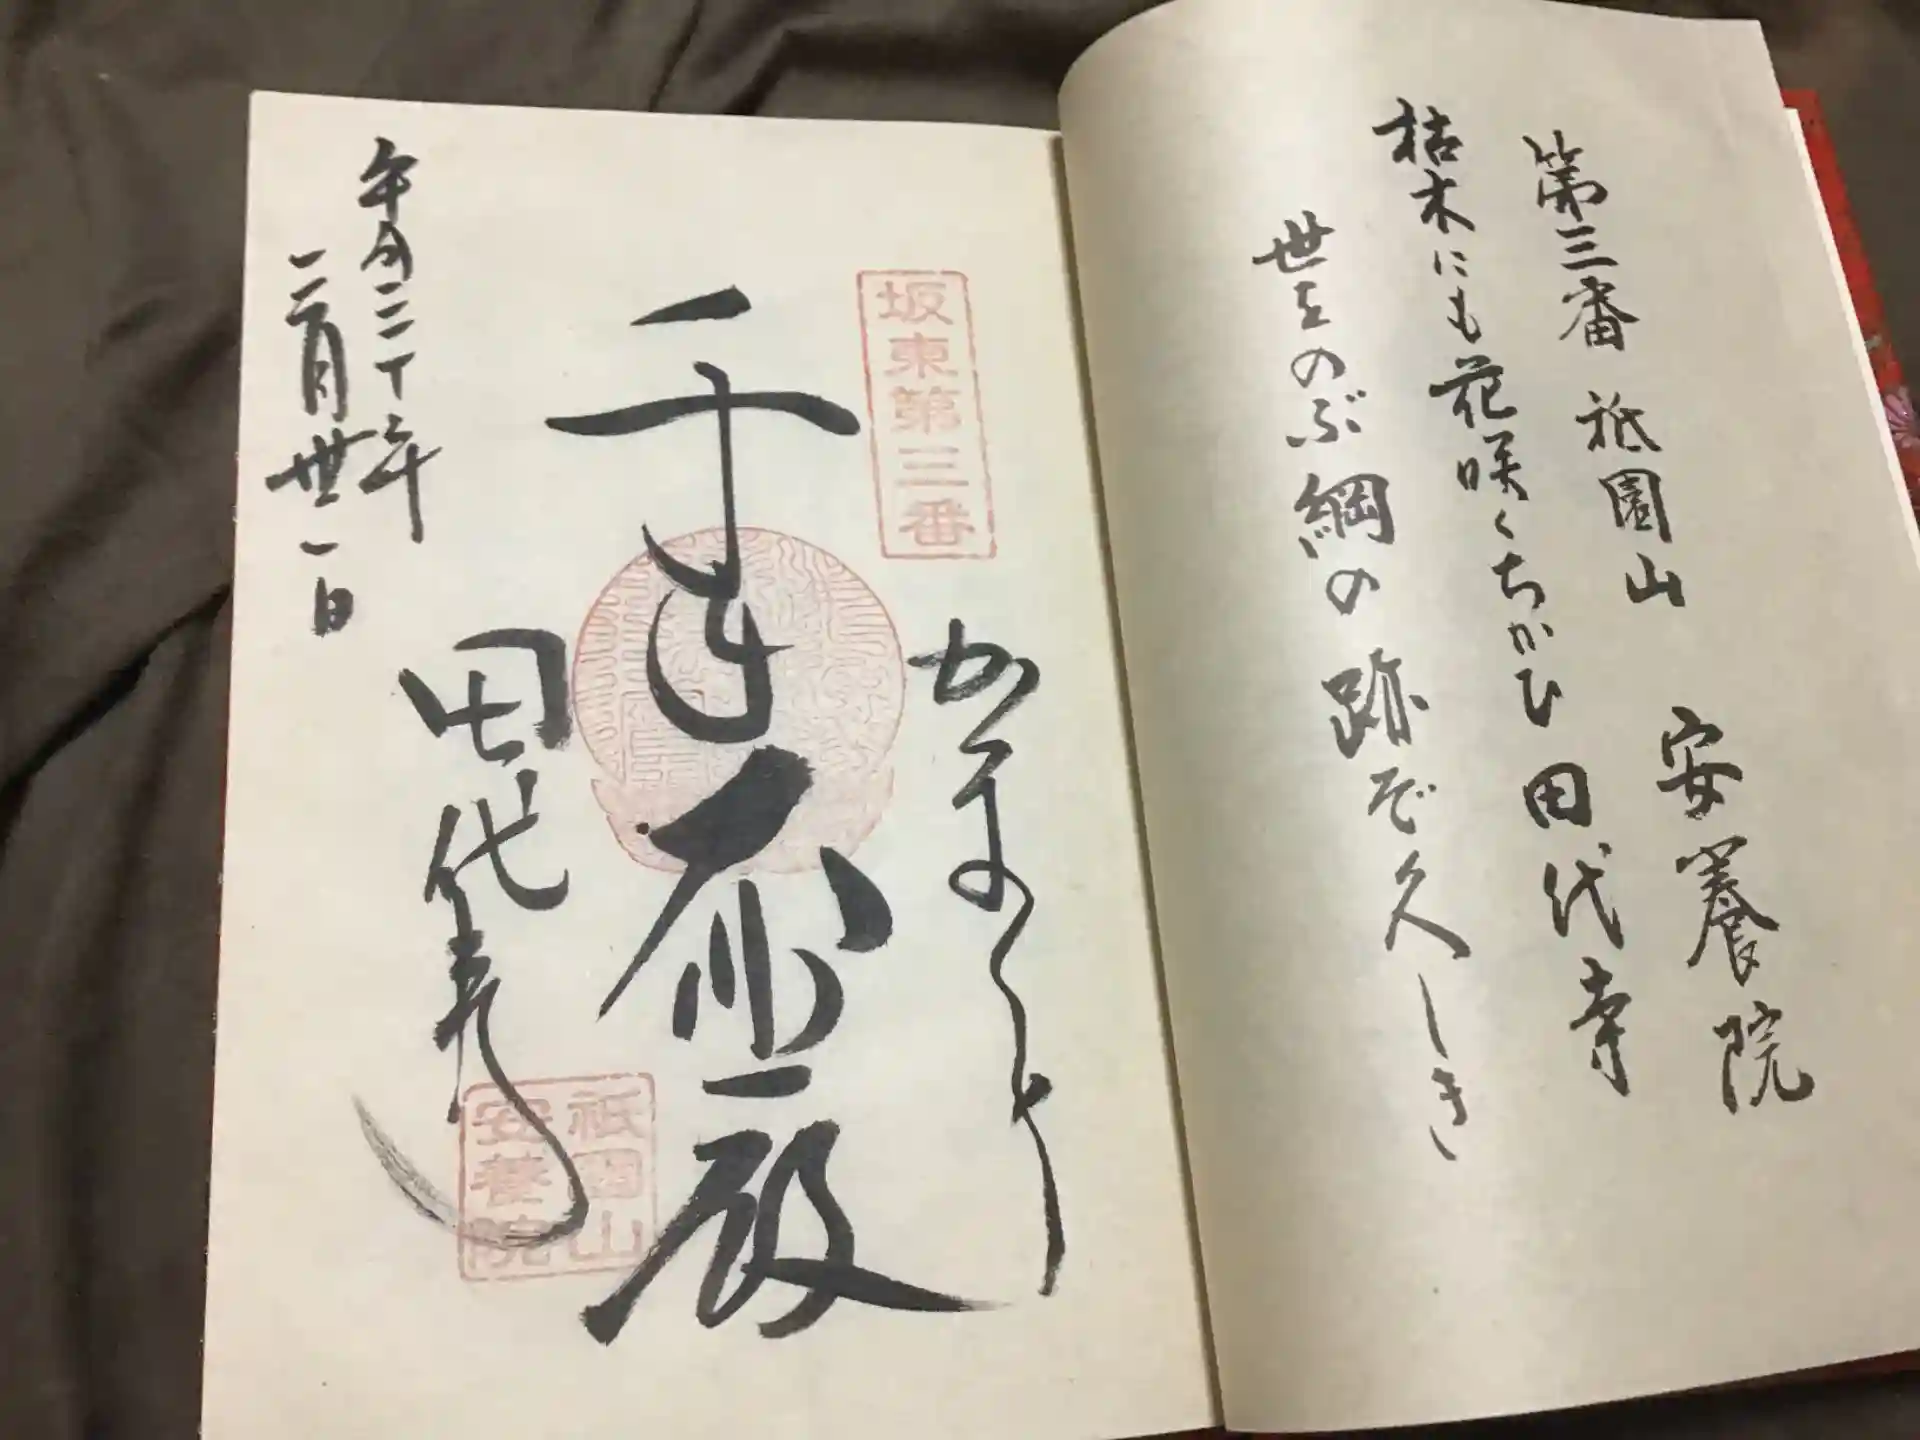 第三番 祇園山 安養院
枯木にも花咲くちかひ田代寺
世をのぶ綱の跡ぞ久しき
坂東第三番
かまくら
千手大悲殿
田代寺
祇園山
安養院
平成三十年
三月廿一日